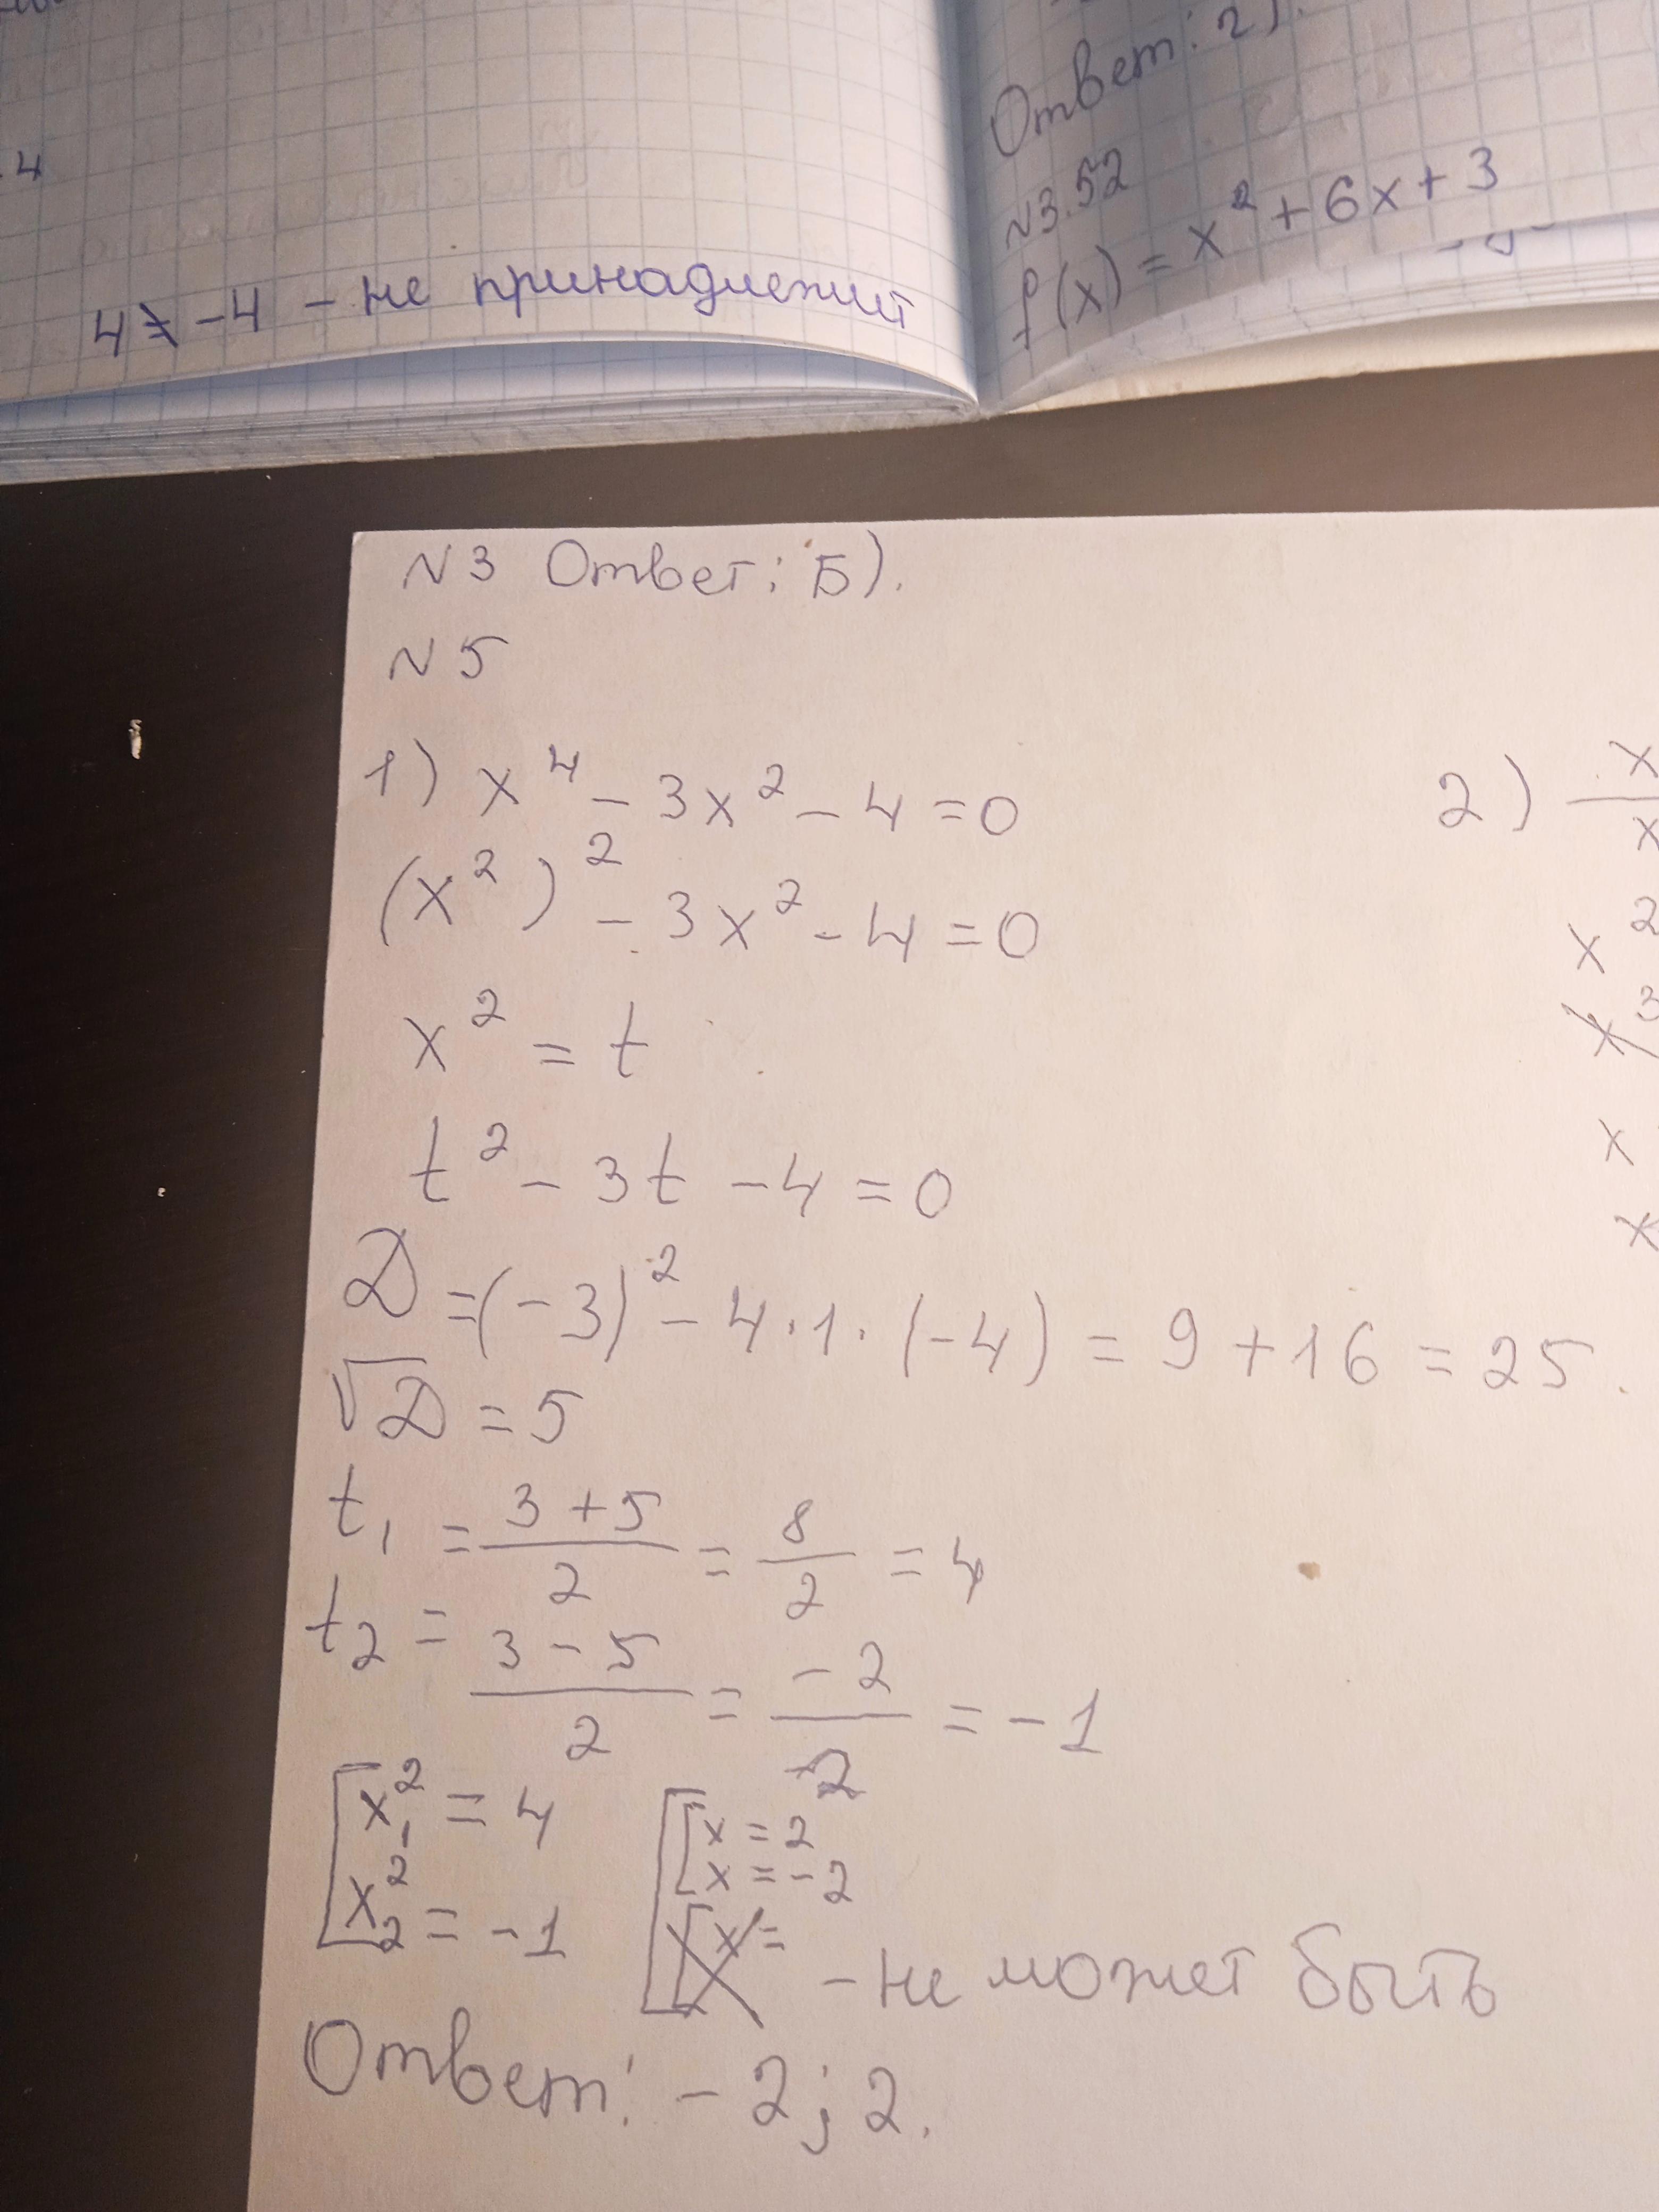 4
4 ≠ -4 - не принадлежит
Ответ: 2).
N3.52
f(x) = x² + 6x + 3
N3 Ответ: Б).
N5
1) x⁴ - 3x² - 4 = 0
(x²)² - 3x² - 4 = 0
x² = t
t² - 3t - 4 = 0
D = (-3)² - 4·1·(-4) = 9 + 16 = 25.
√D = 5
t₁ = (3 + 5)/2 = 8/2 = 4
t₂ = (3 - 5)/2 = -2/2 = -1
[x₁² = 4 [x = 2
x = -2
x₂² = -1 [x = - не может быть
Ответ: -2; 2.
2) x/x
x²
x
x